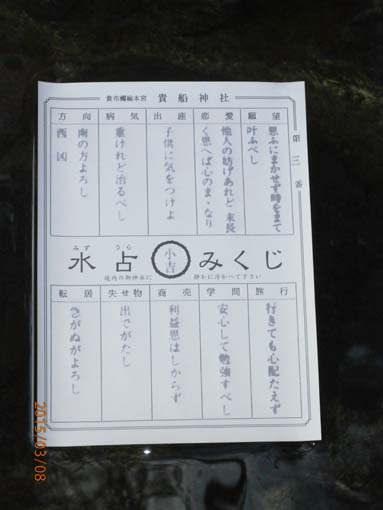 貴布禰総本宮 貴船神社
第三番
願望
思ふにまかせず時をまて
叶ふべし
恋愛
他人の妨げあれど末長
く思へば心のまゝなり
出産
子供に気をつけよ
病気
重けれど治るべし
方向
南の方よろし
西 凶
みず うら
水占 小吉 みくじ
境内の御神水に 静かに浮かべて下さい
旅行
行きても心配たえず
学問
安心して勉強すべし
商売
利益思はしからず
失せ物
出でがたし
転居
急がぬがよろし
2015/03/08